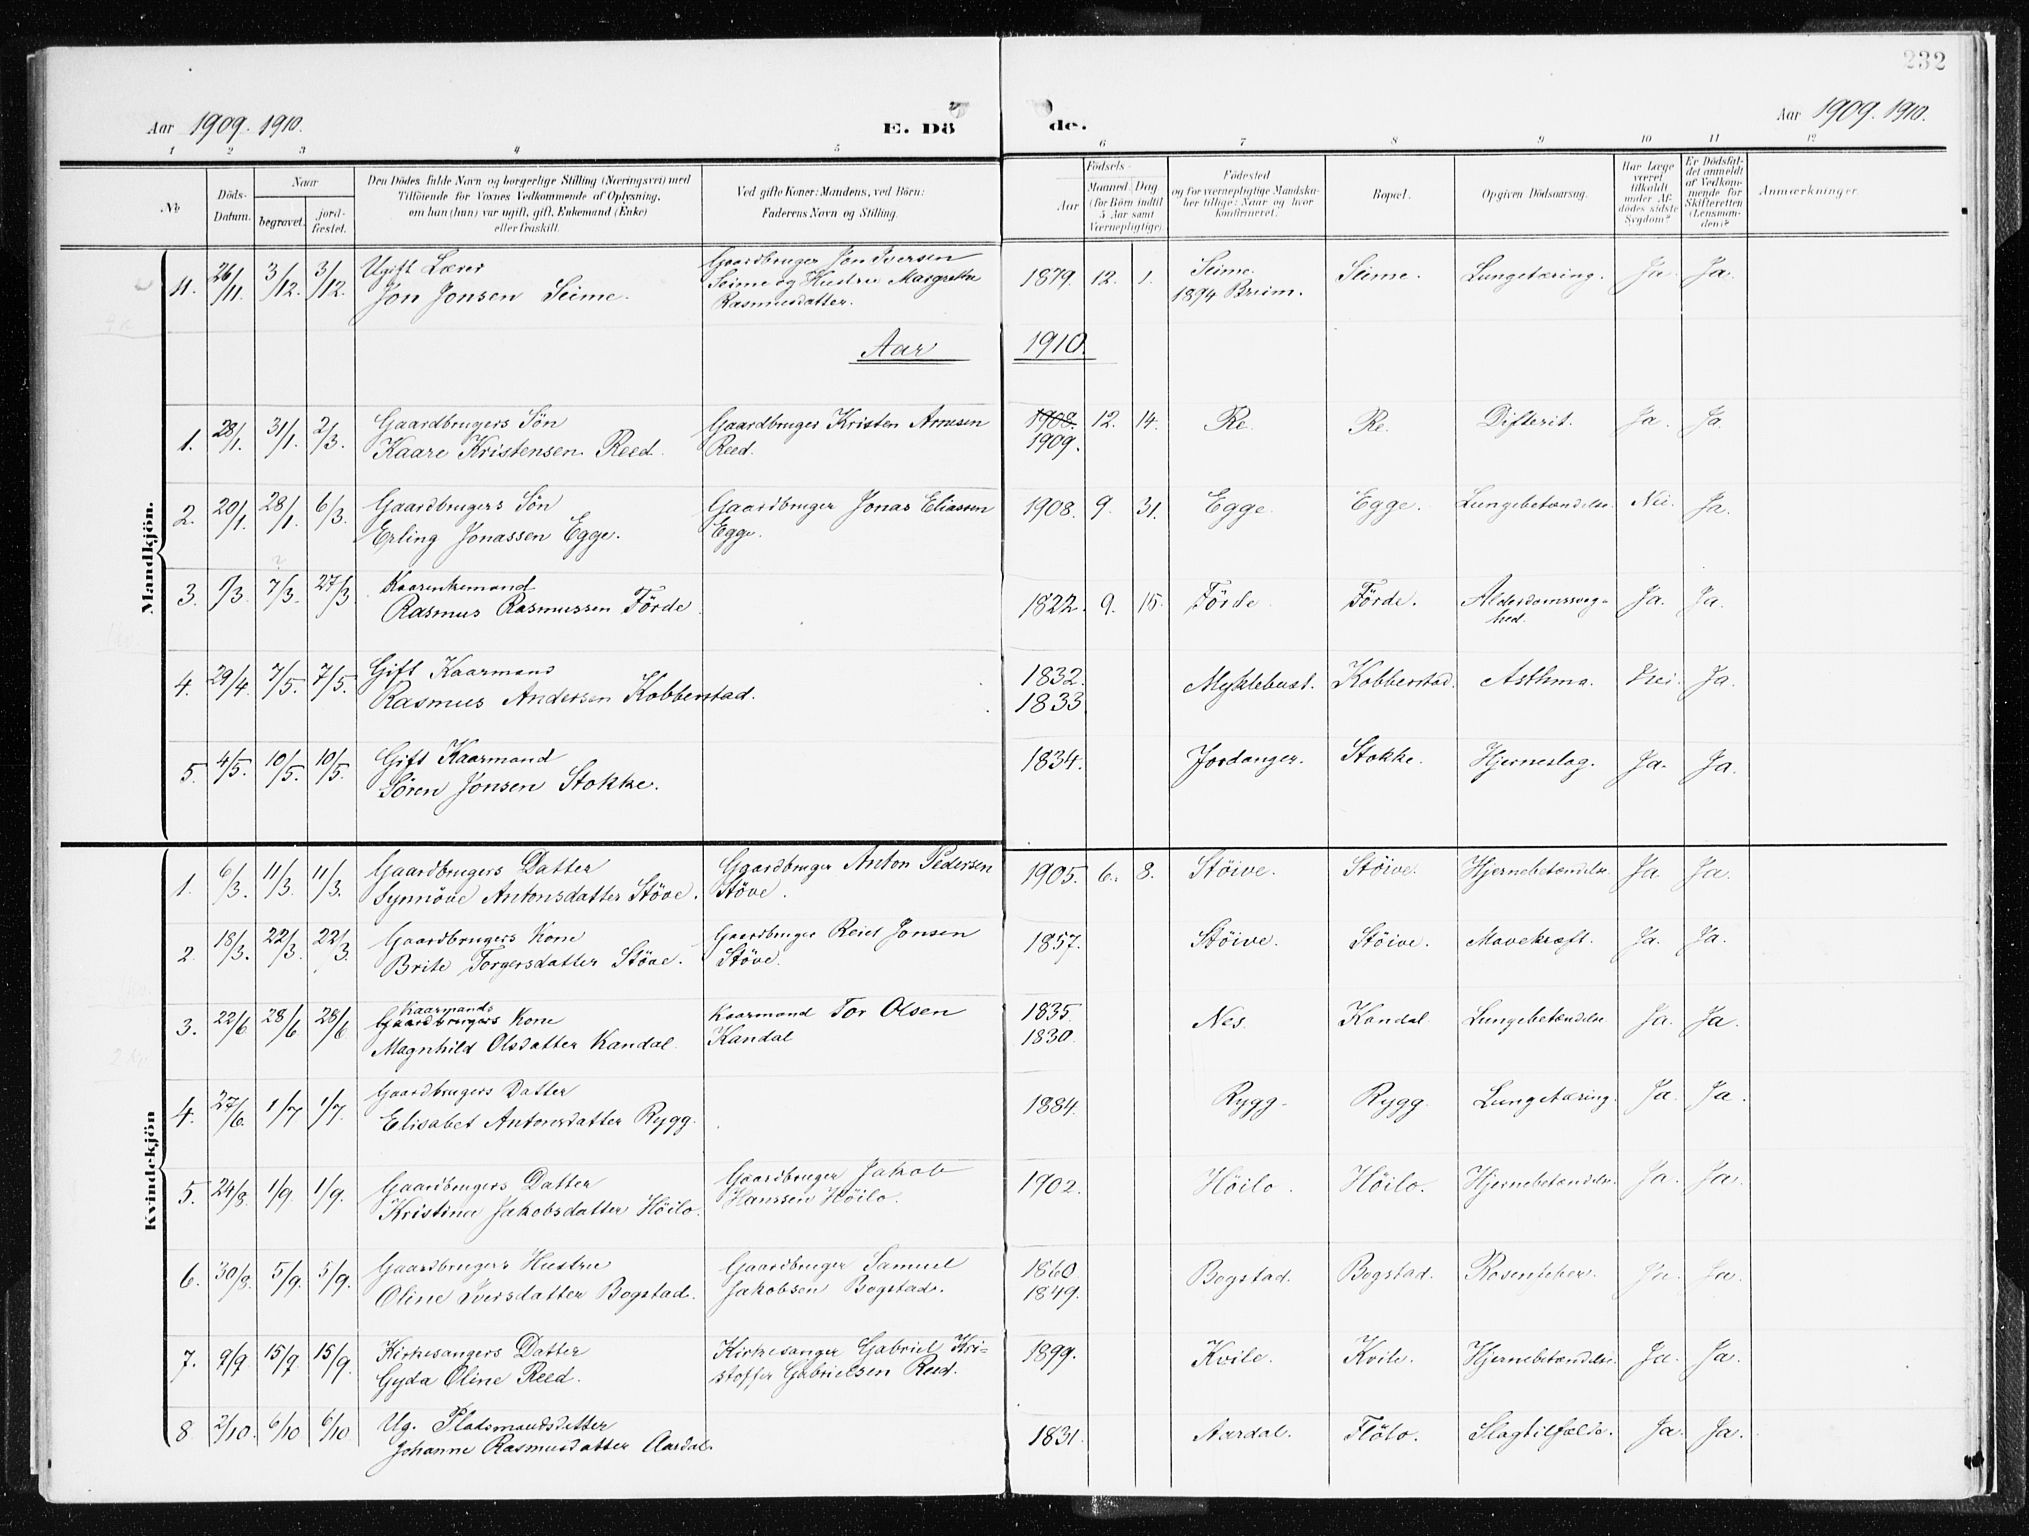 232
Aar 1909. 1910. E. Dö de. Aar 1909. 1910.
1 2 3 4 5 6 7 8 9 10 11 12
No
Döds-Datum.
Naar
begravet.
jordfæstet.
Den Dödes fulde Navn og borgerlige Stilling (Næringsvei) med
Tilföiende for Voxnes Vedkommende af Oplysning,
om han (hun) var ugift, gift, Enkemand (Enke)
eller fraskilt.
Ved gifte Koner: Mandens, ved Börn:
Faderens Navn og Stilling.
Födsels-
Aar
Maaned. Dag
(for Börn indtil
5 Aar samt
Værnepligtige).
Födested
og for værnepligtige Mandska-
ber tillige: Naar og hvor
konfirmeret.
Bopæl.
Opgiven Dödsaarsag.
Har Læge
været
tilkaldt
under Af-
dödes sidste
Sygdom?
Er Dödsfal-
det anmeldt
af Vedkom-
mende for
Skifteretten
(Lensman-
den)?
Anmærkninger.
Mandkjön.
11. 26/11 3/12. 3/12. Ugift Lærer
Jon Jonsen Seime.
Gaardbruger Jon Iversen
Seime og Hustru Margrethe
Rasmusdatter.
1879. 12. 1. Seime.
1894 Breim.
Seime. Lungetæring. Ja Ja.
Aar 1910.
1. 28/1. 31/1. 2/3. Gaardbrugers Sön
Kaare Kristensen Reed.
Gaardbruger Kristen Arnesen
Reed.
1908. 12. 14. Re. Re. Difterit. Ja. Ja.
1909.
2. 20/1. 28/1. 6/3. Gaardbrugers Sön
Erling Jonassen Egge.
Gaardbruger Jonas Eliassen
Egge.
1908. 9. 31. Egge. Egge. Lungebetændelse. Nei. Ja.
3. 1/3. 7/3. 27/3 Kaarenkemand
Rasmus Rasmussen Förde
1822. 9. 15. Förde. Förde. Alderdomssvag-
hed. Ja. Ja.
4. 29/4. 7/5. 7/5. Gift Kaarmand
Rasmus Andersen Kobberstad.
1832. Myklebust. Kobberstad. Asthma. Nei. Ja.
1833
5. 4/5. 10/5. 10/5. Gift Kaarmand
Sören Jonsen Stokke.
1834. Jordanger. Stokke. Hjerneslag. Ja. Ja.
Kvindekjön
1. 6/3. 11/3. 11/3. Gaardbrugers Datter
Synnöve Antonsdatter Stöve.
Gaardbruger Anton Pedersen
Stöve.
1905. 6. 8. Stöive. Stöive. Hjernebetændelse. Ja. Ja.
2. 18/3. 22/3. 22/3. Gaardbrugers Kone
Brite Torgersdatter Stöve.
Gaardbruger Jonsen
Stöve.
1857. Stöive. Stöive. Mavekræft. Ja. Ja.
3. 22/6 28/6 28/6 Kaarmands
Gaardbrugers Kone
Magnhild Olsdatter Kandal.
Kaarmand Tor Olsen
Kandal
1835. Nes. Kandal Lungebetændelse Ja. Ja.
1830.
4. 27/6. 1/7 1/7. Gaardbrugers Datter
Elisabet Antonsdatter Rygg.
1884. Rygg. Rygg. Lungetæring. Ja. Ja.
5. 24/8. 1/9. 1/9. Gaardbrugers Datter
Kristina Jakobsdatter Höilo.
Gaardbruger Jakob
Hanssen Höilo.
1902. Höilo. Höilo. Hjernebetændelse. Ja. Ja.
6. 30/8. 5/9. 5/9. Gaardbrugers Hustru
Oline Iversdatter Bogstad.
Gaardbruger Samuel
Jakobsen Bogstad.
1860 Bogstad. Bogstad. Rosenfeber. Ja. Ja.
1849.
7. 9/9 15/9. 15/9. Kirkesangers Datter
Gyda Oline Reed.
Kirkesanger Gabriel Kri-
stoffer Gabrielsen Reed.
1899. Kvile. Kvile. Hjernebetændelse. Ja. Ja.
8 2/10. 6/10 6/10 Ug. Pladsmandsdatter
Johanne Rasmusdatter Aardal.
1831. Aardal. Flölo. Slagtilfælde. Ja. Ja.